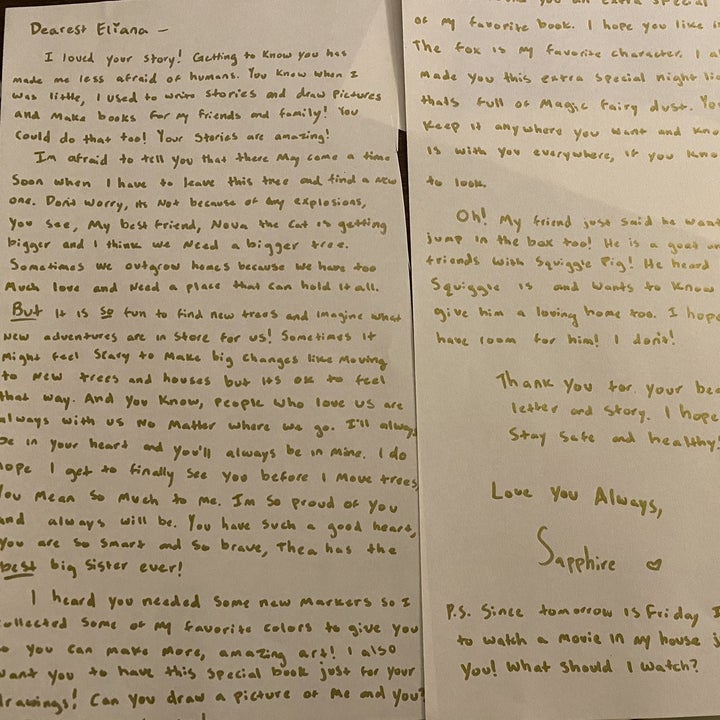 Dearest Eliana –
I loved your story! Getting to know you has
made me less afraid of humans. You know when I
was little, I used to write stories and draw pictures
and make books for my friends and family! You
could do that too! Your stories are amazing!
I'm afraid to tell you that there may come a time
soon when I have to leave this tree and find a new
one. Don't worry, its not because of any explosions,
You see, my best friend, Nova the Cat is getting
bigger and I think we need a bigger tree.
Sometimes we outgrow homes because we have too
much love and need a place that can hold it all.
But it is so fun to find new trees and imagine what
new adventures are in store for us! Sometimes it
might feel scary to make big changes like moving
to new trees and houses but its ok to feel
that way. And you know, people who love us are
always with us no matter where we go. I'll always
be in your heart and you'll always be in mine. I do
hope I get to finally see you before I move trees,
You mean so much to me. Im so proud of you
and always will be. You have such a good heart,
you are so smart and so brave, Thea has the
best big sister ever!
I heard you needed some new markers so I
collected some of my favorite colors to give you
so you can make more, amazing art! I also
want you to have this special book just for your
drawings! Can you draw a picture of me and you?
you an extra special
of my favorite book. I hope you like i
The fox is my favorite character. I al
made you this extra special night li
thats full of magic fairy dust. Yo
keep it anywhere you want and kno
is with you everywhere, if you kno
to look.
Oh! My friend just said he want
jump in the box too! He is a goat an
friends with Squiggle Pig! He heard
Squiggle is and wants to know
give him a loving home too. I hope
have room for him! I don't!
Thank you for your bea
letter and story. I hope
stay safe and healthy!
Love You Always,
Sapphire ♡
P.S. Since tomorrow is Friday I
to watch a movie in my house j
you! What should I watch?